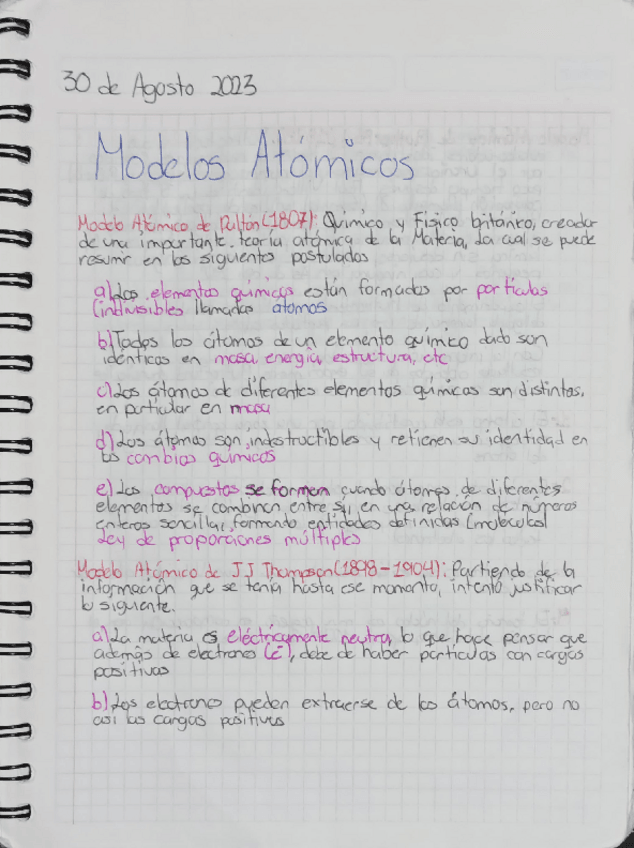 30 de Agosto 2023
Modelos Atómicos
Modelo Atómico de Dalton (1807): Químico y Físico británico, creador
de una importante teoría atómica de la Materia, La cual se puede
resumir en los siguientes postulados
a) Los elementos químicos están formados por partículas
(indivisibles llamadas átomos
b) Todos los átomos de un elemento químico dado son
idénticos en masa energía estructura, etc
c) Los átomos de diferentes elementos químicos son distintos,
en particular en masa
d) Los átomos son indestructibles y retienen su identidad en
los cambios químicos
e) Los compuestos se forman cuando átomos de diferentes
elementos se combinan entre sí, en una relación de números
enteros sencilla, formando entidades definidas (moléculas)
Ley de proporciones múltiples
Modelo Atómico de J J Thompson (1898-1904): Partiendo de la
información que se tenía hasta ese momento, intentó justificar
lo siguiente.
a) La materia es eléctricamente neutra, lo que hace pensar que
además de electrones (e⁻), debe de haber partículas con cargas
positivas
b) Los electrones pueden extraerse de los átomos, pero no
así las cargas positivas